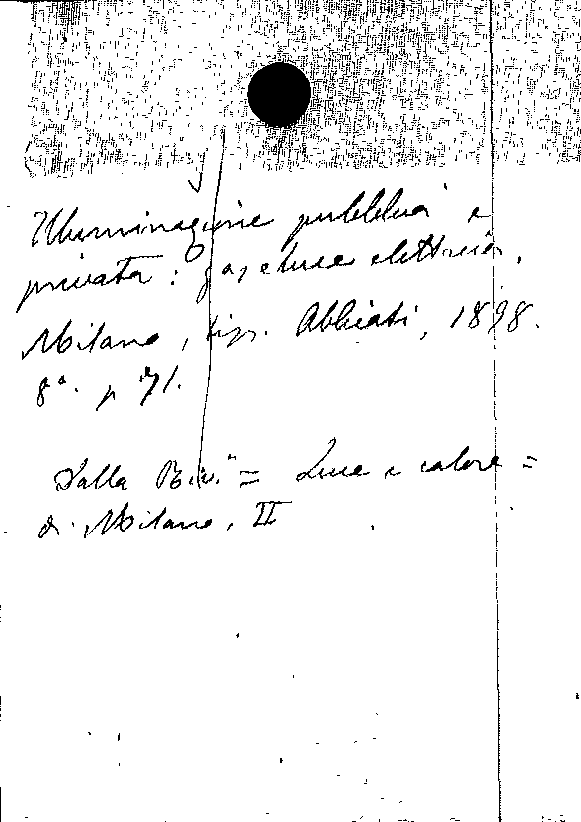 Illuminazione pubblica e
privata: gas e luce elettrica.
Milano, tip. Abbiati, 1898.
8°. p 71.
Dalla Riv.ª = Luce e calore =
di Milano, II